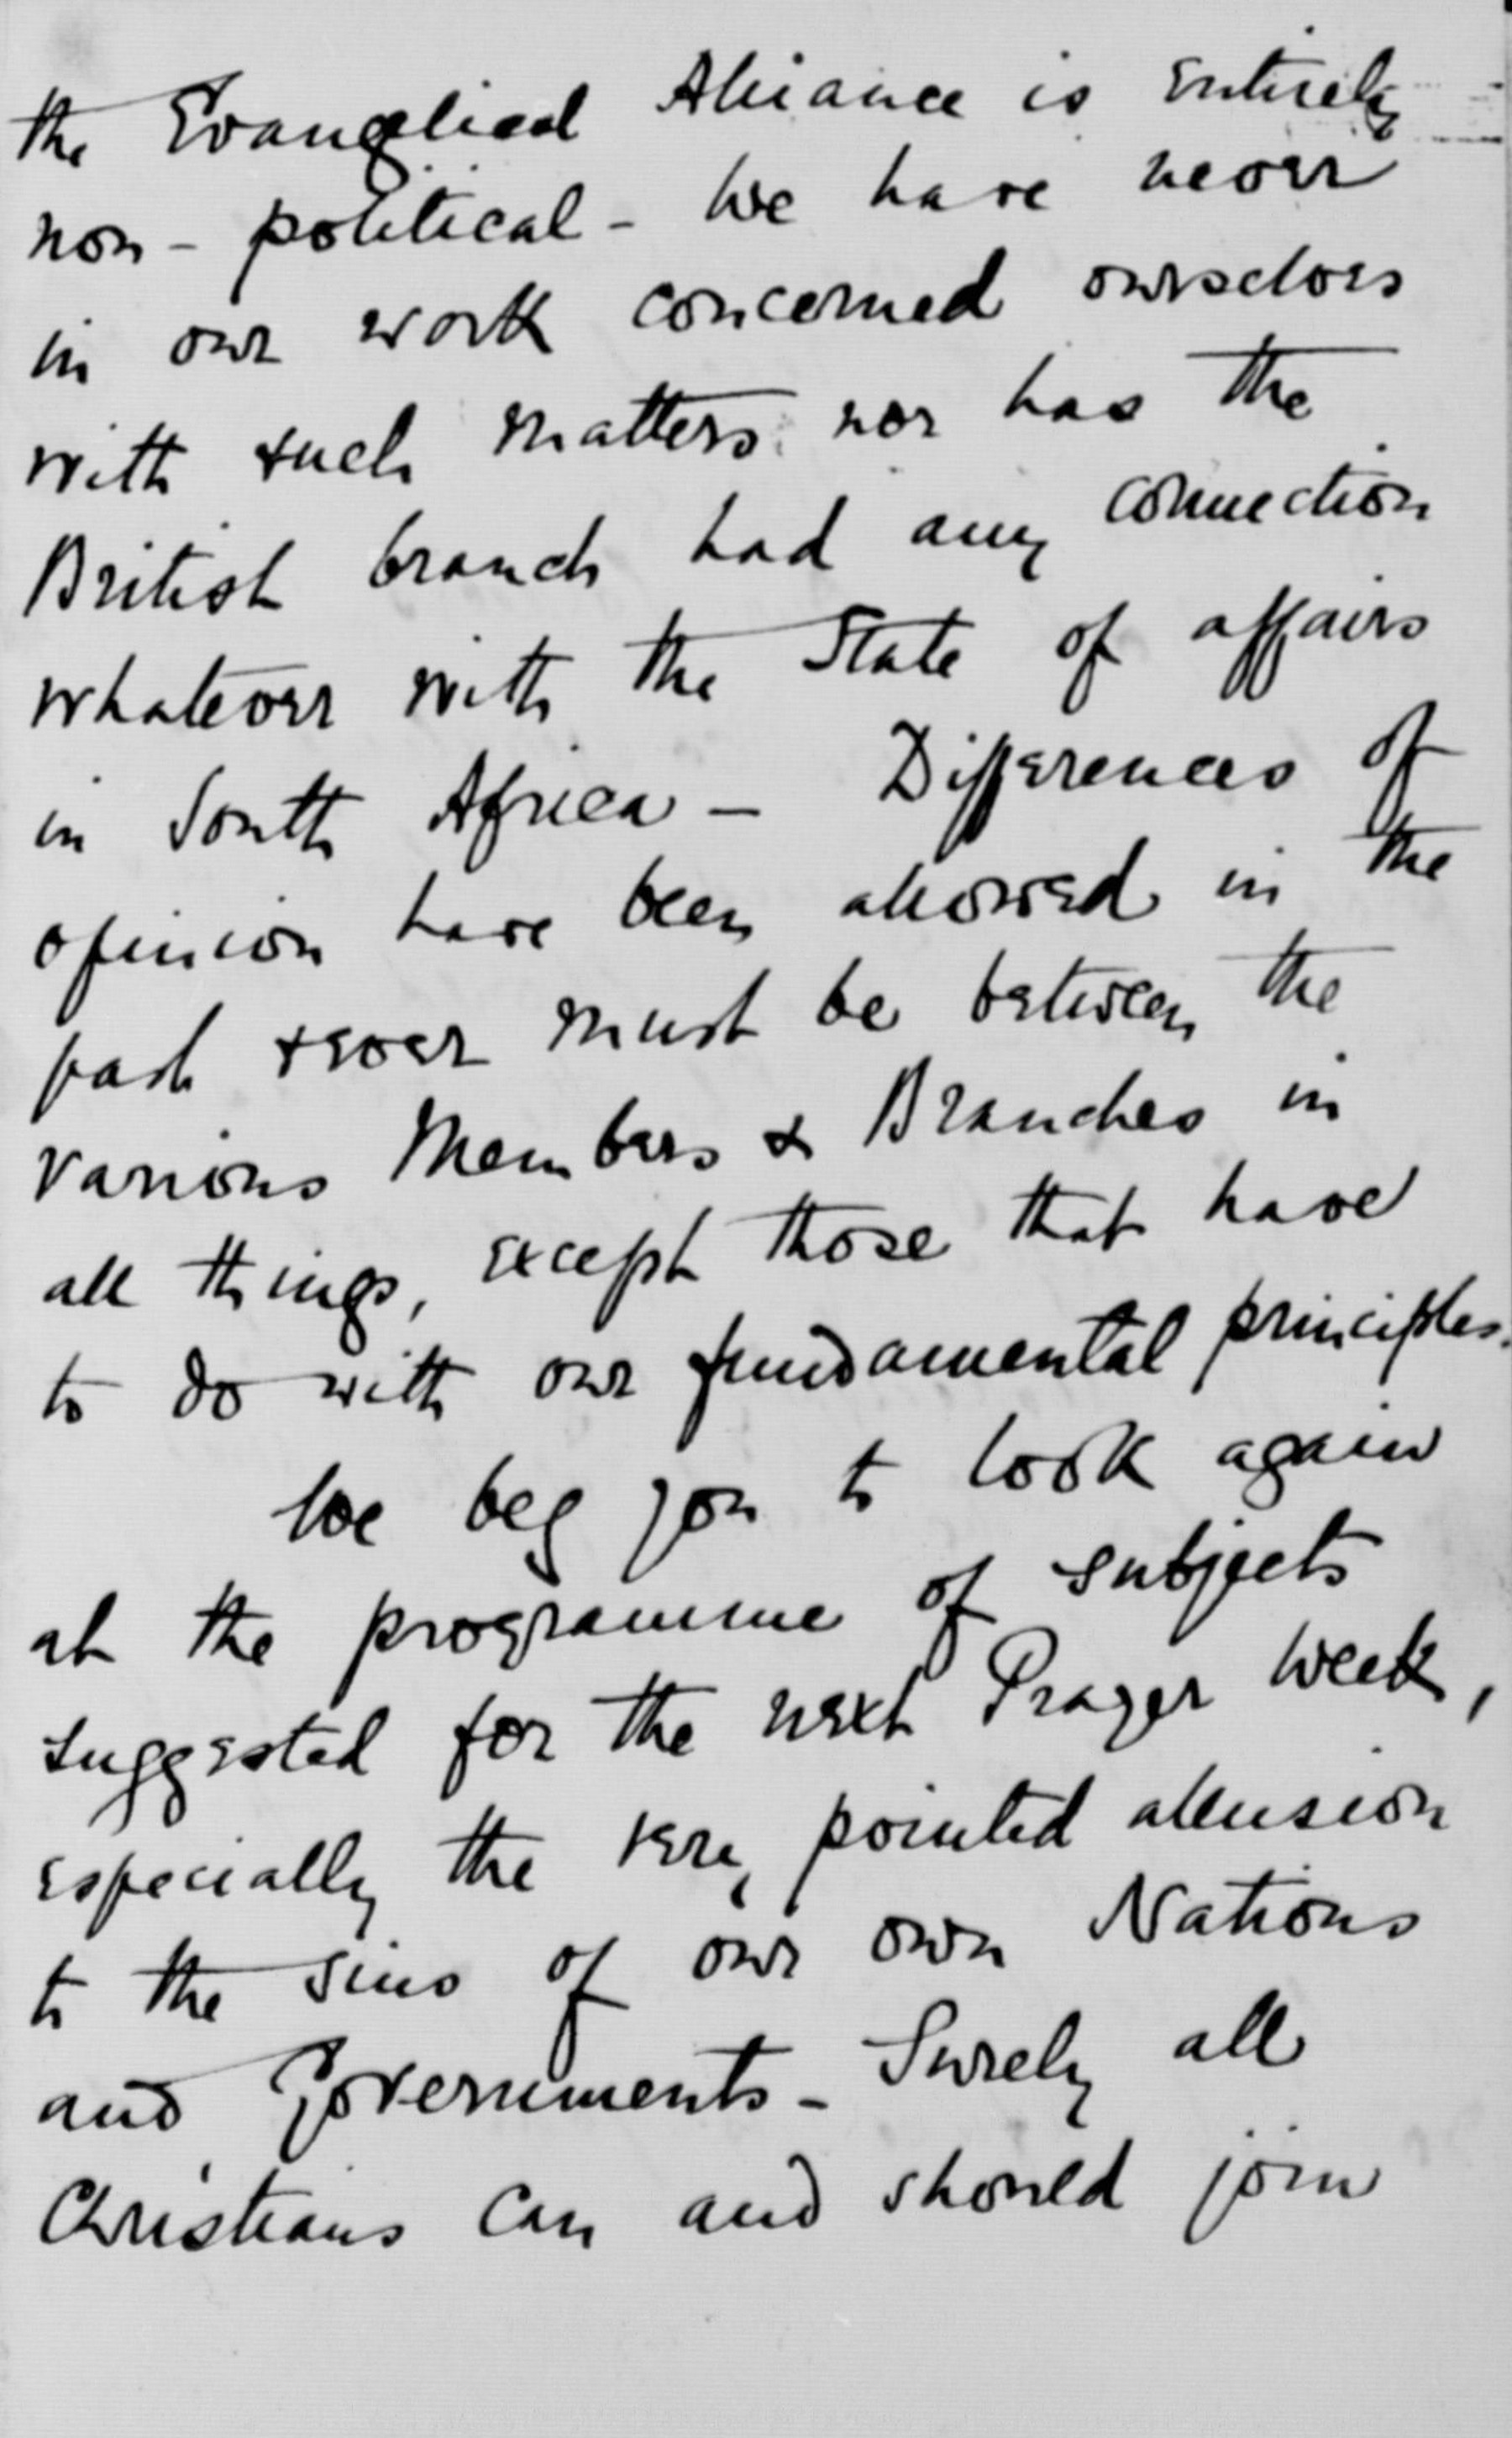 the Evangelical Alliance is entirely
non-political - We have never
in our work concerned ourselves
with such matters nor has the
British branch had any connection
whatever with the State of affairs
in South Africa - Differences of
opinion have been allowed in the
past & ever must be between the
various Members & Branches in
all things, except those that have
to do with our fundamental principles.
We beg you to look again
at the programme of subjects
suggested for the next Prayer Week,
especially the very pointed allusion
to the sins of our own Nations
and Governments - Surely all
Christians can and should join